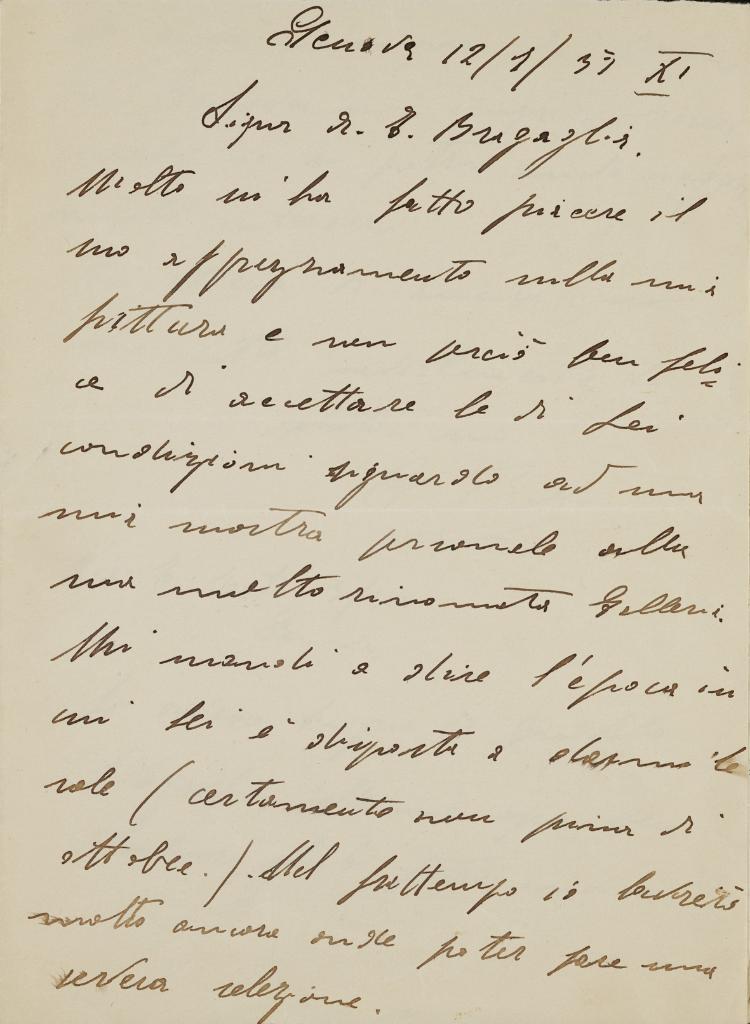 Genova 12/1/33 XI
Signor A. G. Bragaglia.
Molto mi ha fatto piacere il
suo apprezzamento sulla mia
pittura e non perciò ben feli=
ce di accettare le di Lei
condizioni riguardo ad una
mia mostra personale alla
sua molto rinomata Galleria.
Mi mandi a dire l'epoca in
cui Lei è disposta a darmi le
sale (certamente non prima di
ottobre.). Nel frattempo io lavorerò
molto ancora onde poter fare una
severa selezione.